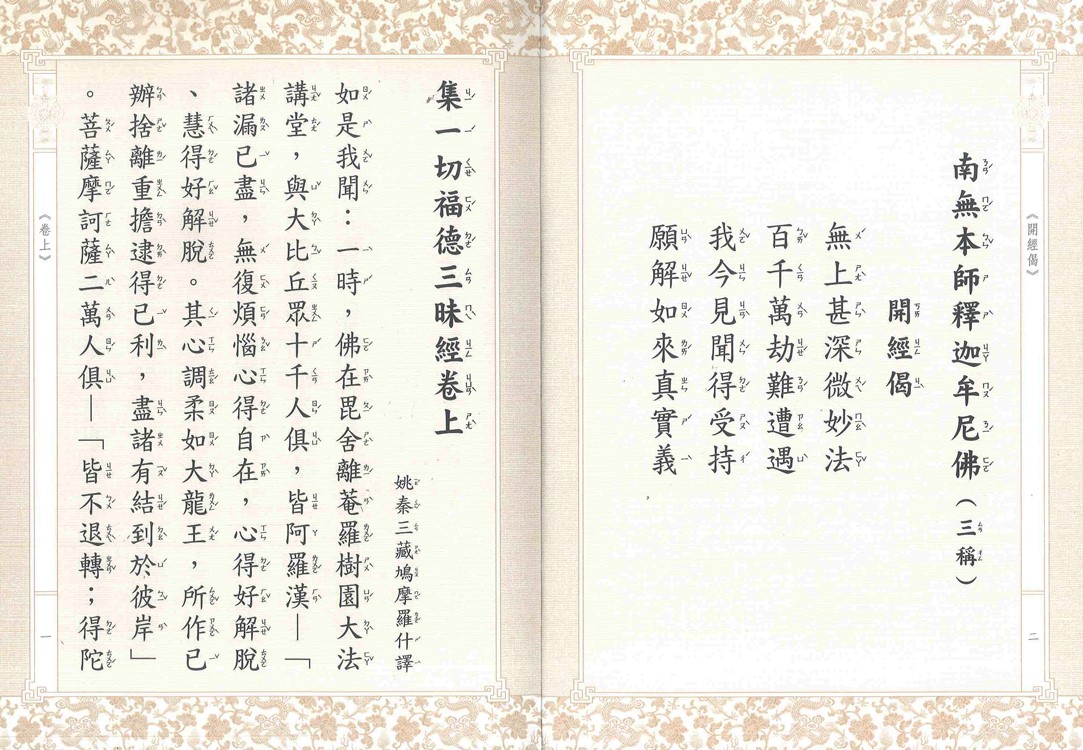 《開經偈》
二
南無本師釋迦牟尼佛(三稱)
開經偈
無上甚深微妙法
百千萬劫難遭遇
我今見聞得受持
願解如來真實義
集一切福德三昧經卷上
姚秦三藏鳩摩羅什譯
如是我聞：一時，佛在毘舍離菴羅樹園大法
講堂，與大比丘眾十千人俱，皆阿羅漢—「
諸漏已盡，無復煩惱心得自在，心得好解脫
、慧得好解脫。其心調柔如大龍王，所作已
辦捨離重擔逮得已利，盡諸有結到於彼岸」
。菩薩摩訶薩二萬人俱—「皆不退轉；得陀
《卷上》
一